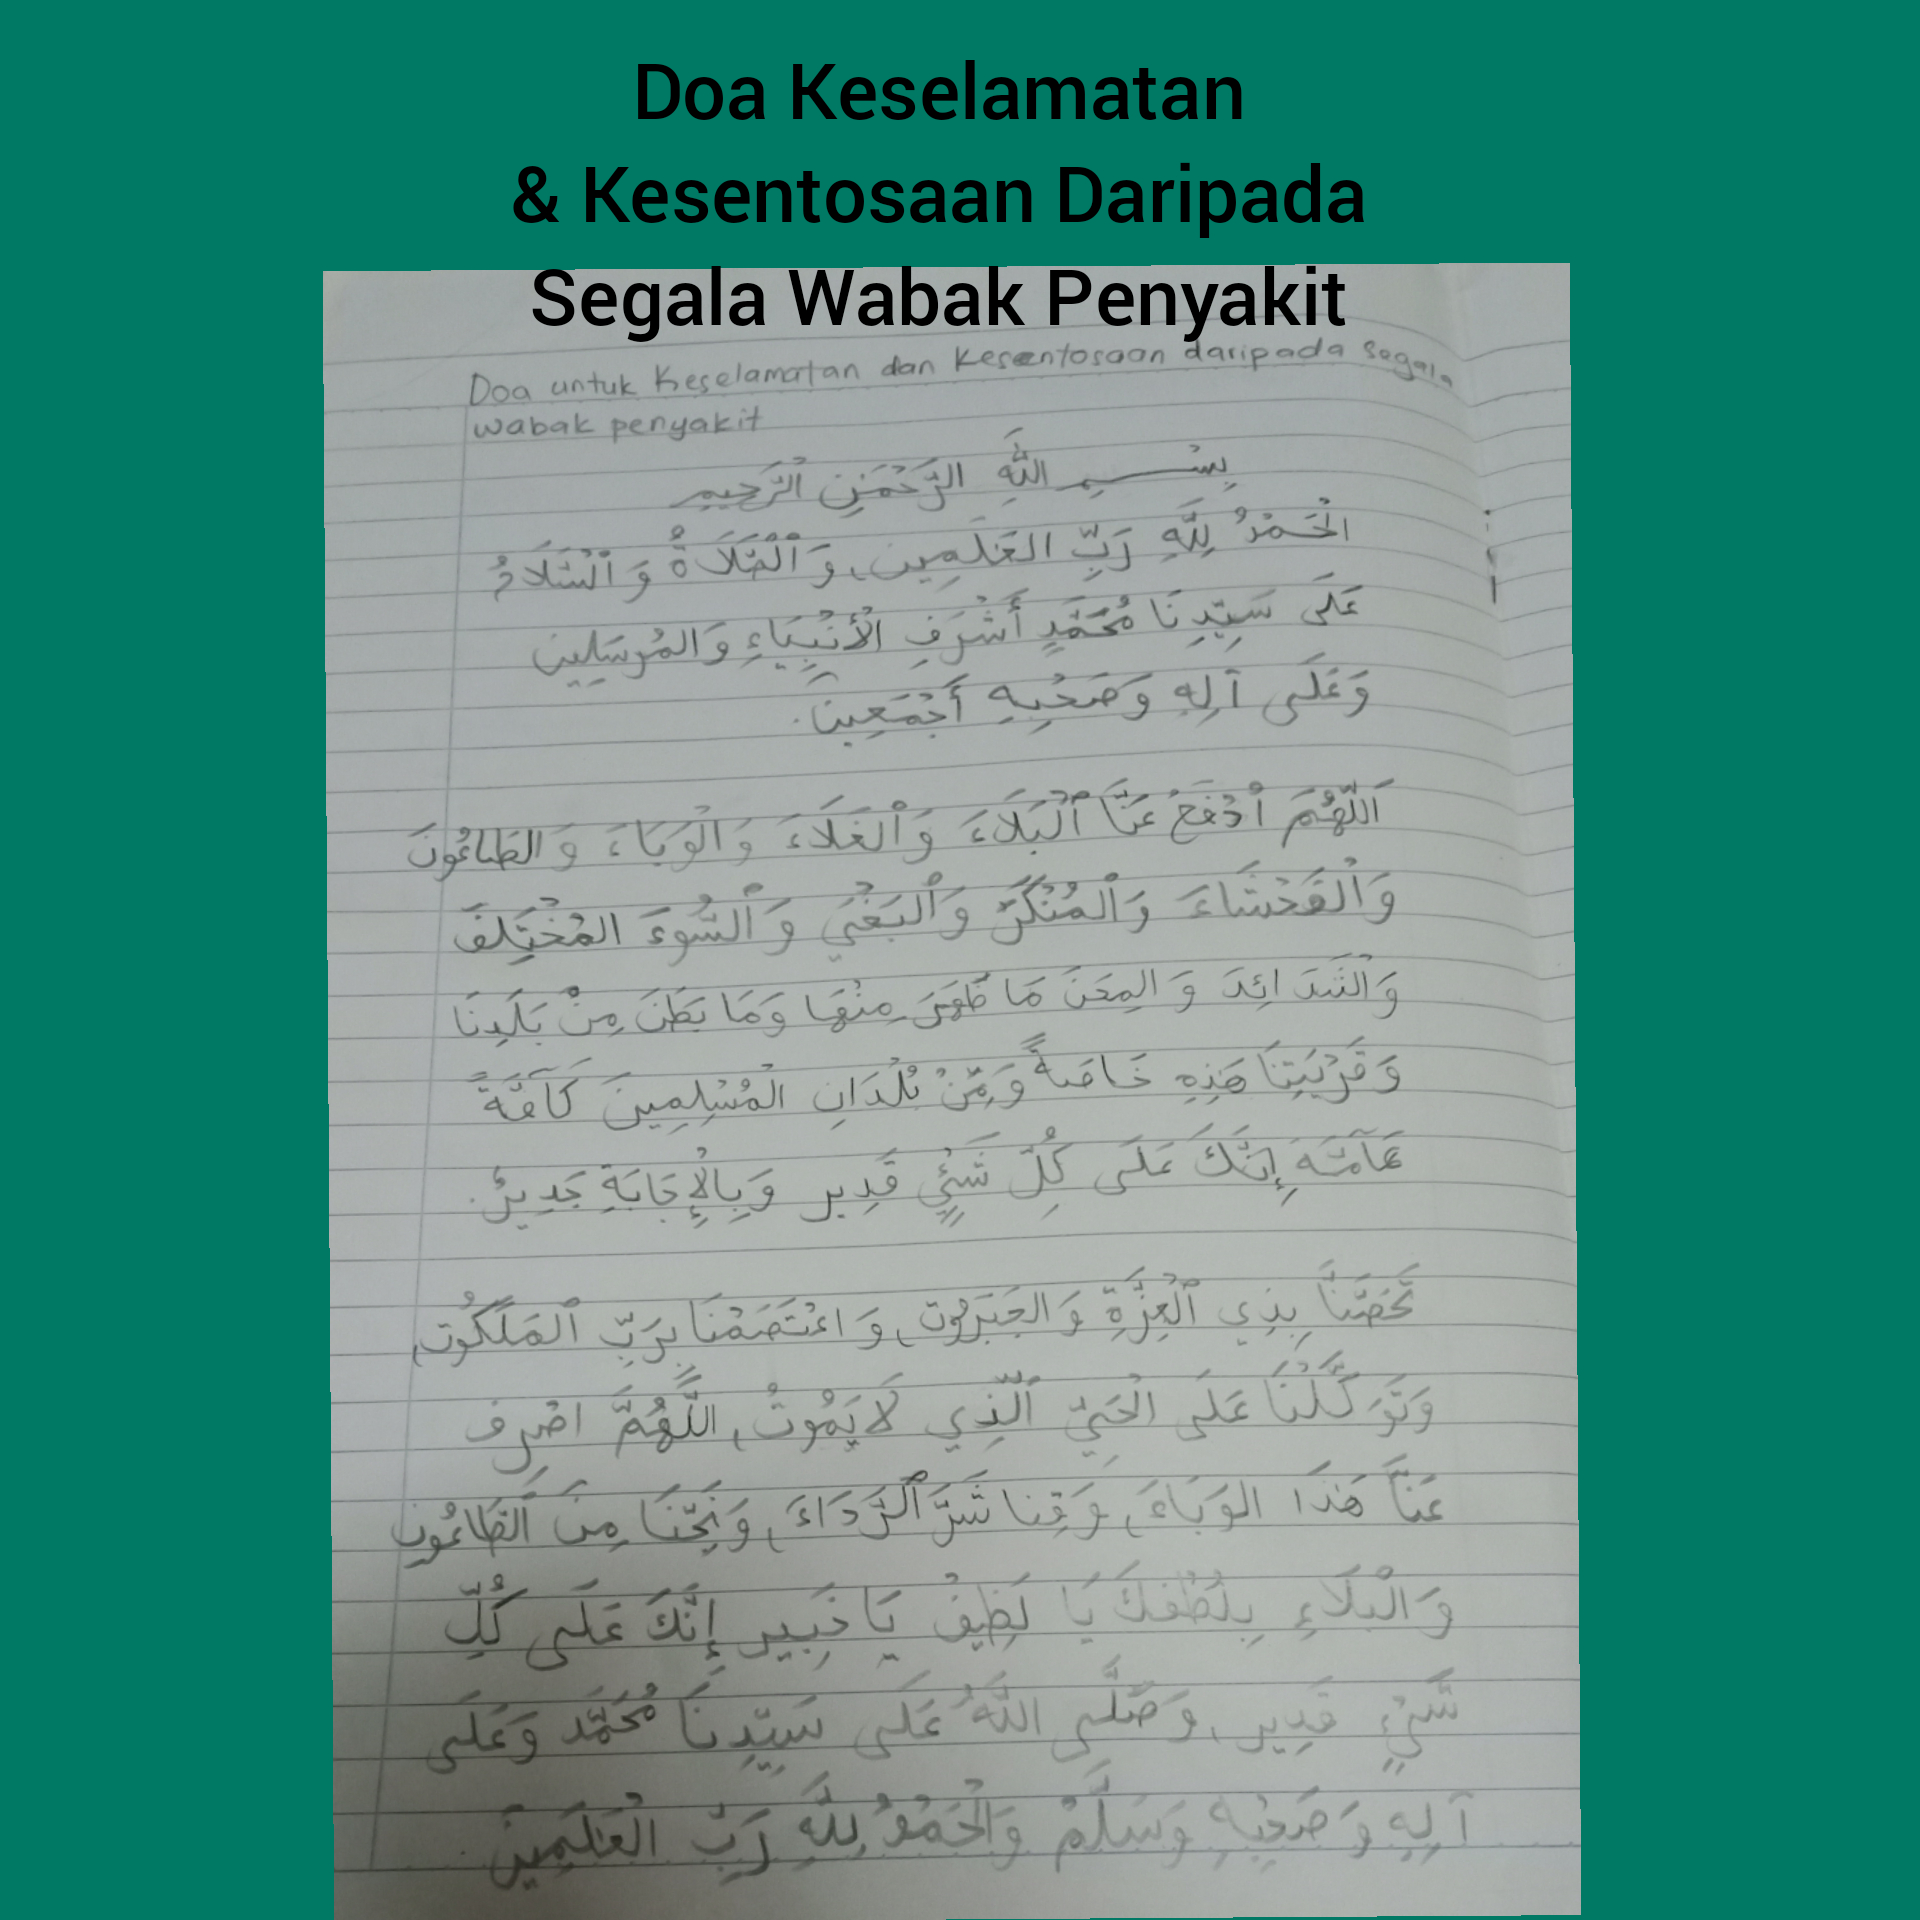 Doa Keselamatan
& Kesentosaan Daripada
Segala Wabak Penyakit
Doa untuk Keselamatan dan Kesentosaan daripada segala
wabak penyakit
بِسْـــمِ اللَّهِ الرَّحْمَنِ الرَّحِيمِ
الْحَمْدُ لِلَّهِ رَبِّ العَلَمِينَ، وَالْصَّلَاةُ وَالْسَّلَامُ
عَلَى سَيِّدِنَا مُحَمَّدٍ أَشْرَفِ الْأَنْبِيَاءِ وَالمُرسَلِينَ
وَعَلَى آلِهِ وَصَحْبِهِ أَجْمَعِينَ.
اَللّهُمَ ادْفَعْ عَنَّا الْبَلَاءَ وَالْغَلَاءَ وَالْوَبَاءَ وَالطَاعُونَ
وَالْفَحْشَاءَ وَالْمُنْكَرَ وَالْبَغْيَ وَالْسُّوءَ المُخْتَلِفَ
وَالْشَدَائِدَ وَالمِحَنَ مَا ظَهَرَ مِنْهَا وَمَا بَطَنَ مِنْ بَلَدِنَا
وَقَرْيَتِنَا هَذِهِ خَاصَةً وَمِنْ بُلْدَانِ الْمُسْلِمِينَ كَآفَّةً
عَآمَّة إِنَّكَ عَلَى كُلِّ شَيْءٍ قَدِير وَبِالْإِجَابَةِ جَدِيرْ.
تَحَصَّنَّا بِذِي الْعِزَّةِ وَالجَبَرُوت، وَاعْتَصَمْنَا بِرَبِّ الْمَلَكُوت،
وَتَوَكَّلْنَا عَلَى الْحَيِّ الَّذِي لَايَمُوتُ، اللَّهُمَّ اصْرِف
عَنَّا هَذَا الوَبَاءَ، وَقِنا شَرَّ الْرَّدَاءَ، وَنَجِّنَا مِنَ الْطَّاعُونِ
وَالْبَلَاءِ بِلُطْفِكَ يَا لَطِيفُ يَا خَبِير إِنَّكَ عَلَى كُلِّ
شَيْءٍ قَدِير، وَصَلَّى اللَّهُ عَلَى سَيِّدِنَا مُحَمَّد وَعَلَى
آلِهِ وَصَحْبِهِ وَسَلَّمْ وَالْحَمْدُ لِلَّهِ رَبِّ الْعَلَمِينْ.